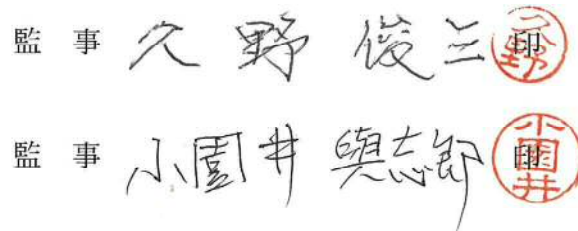 監事 久野 俊三 印 久野
監事 小園井 與志郎 印 小園井